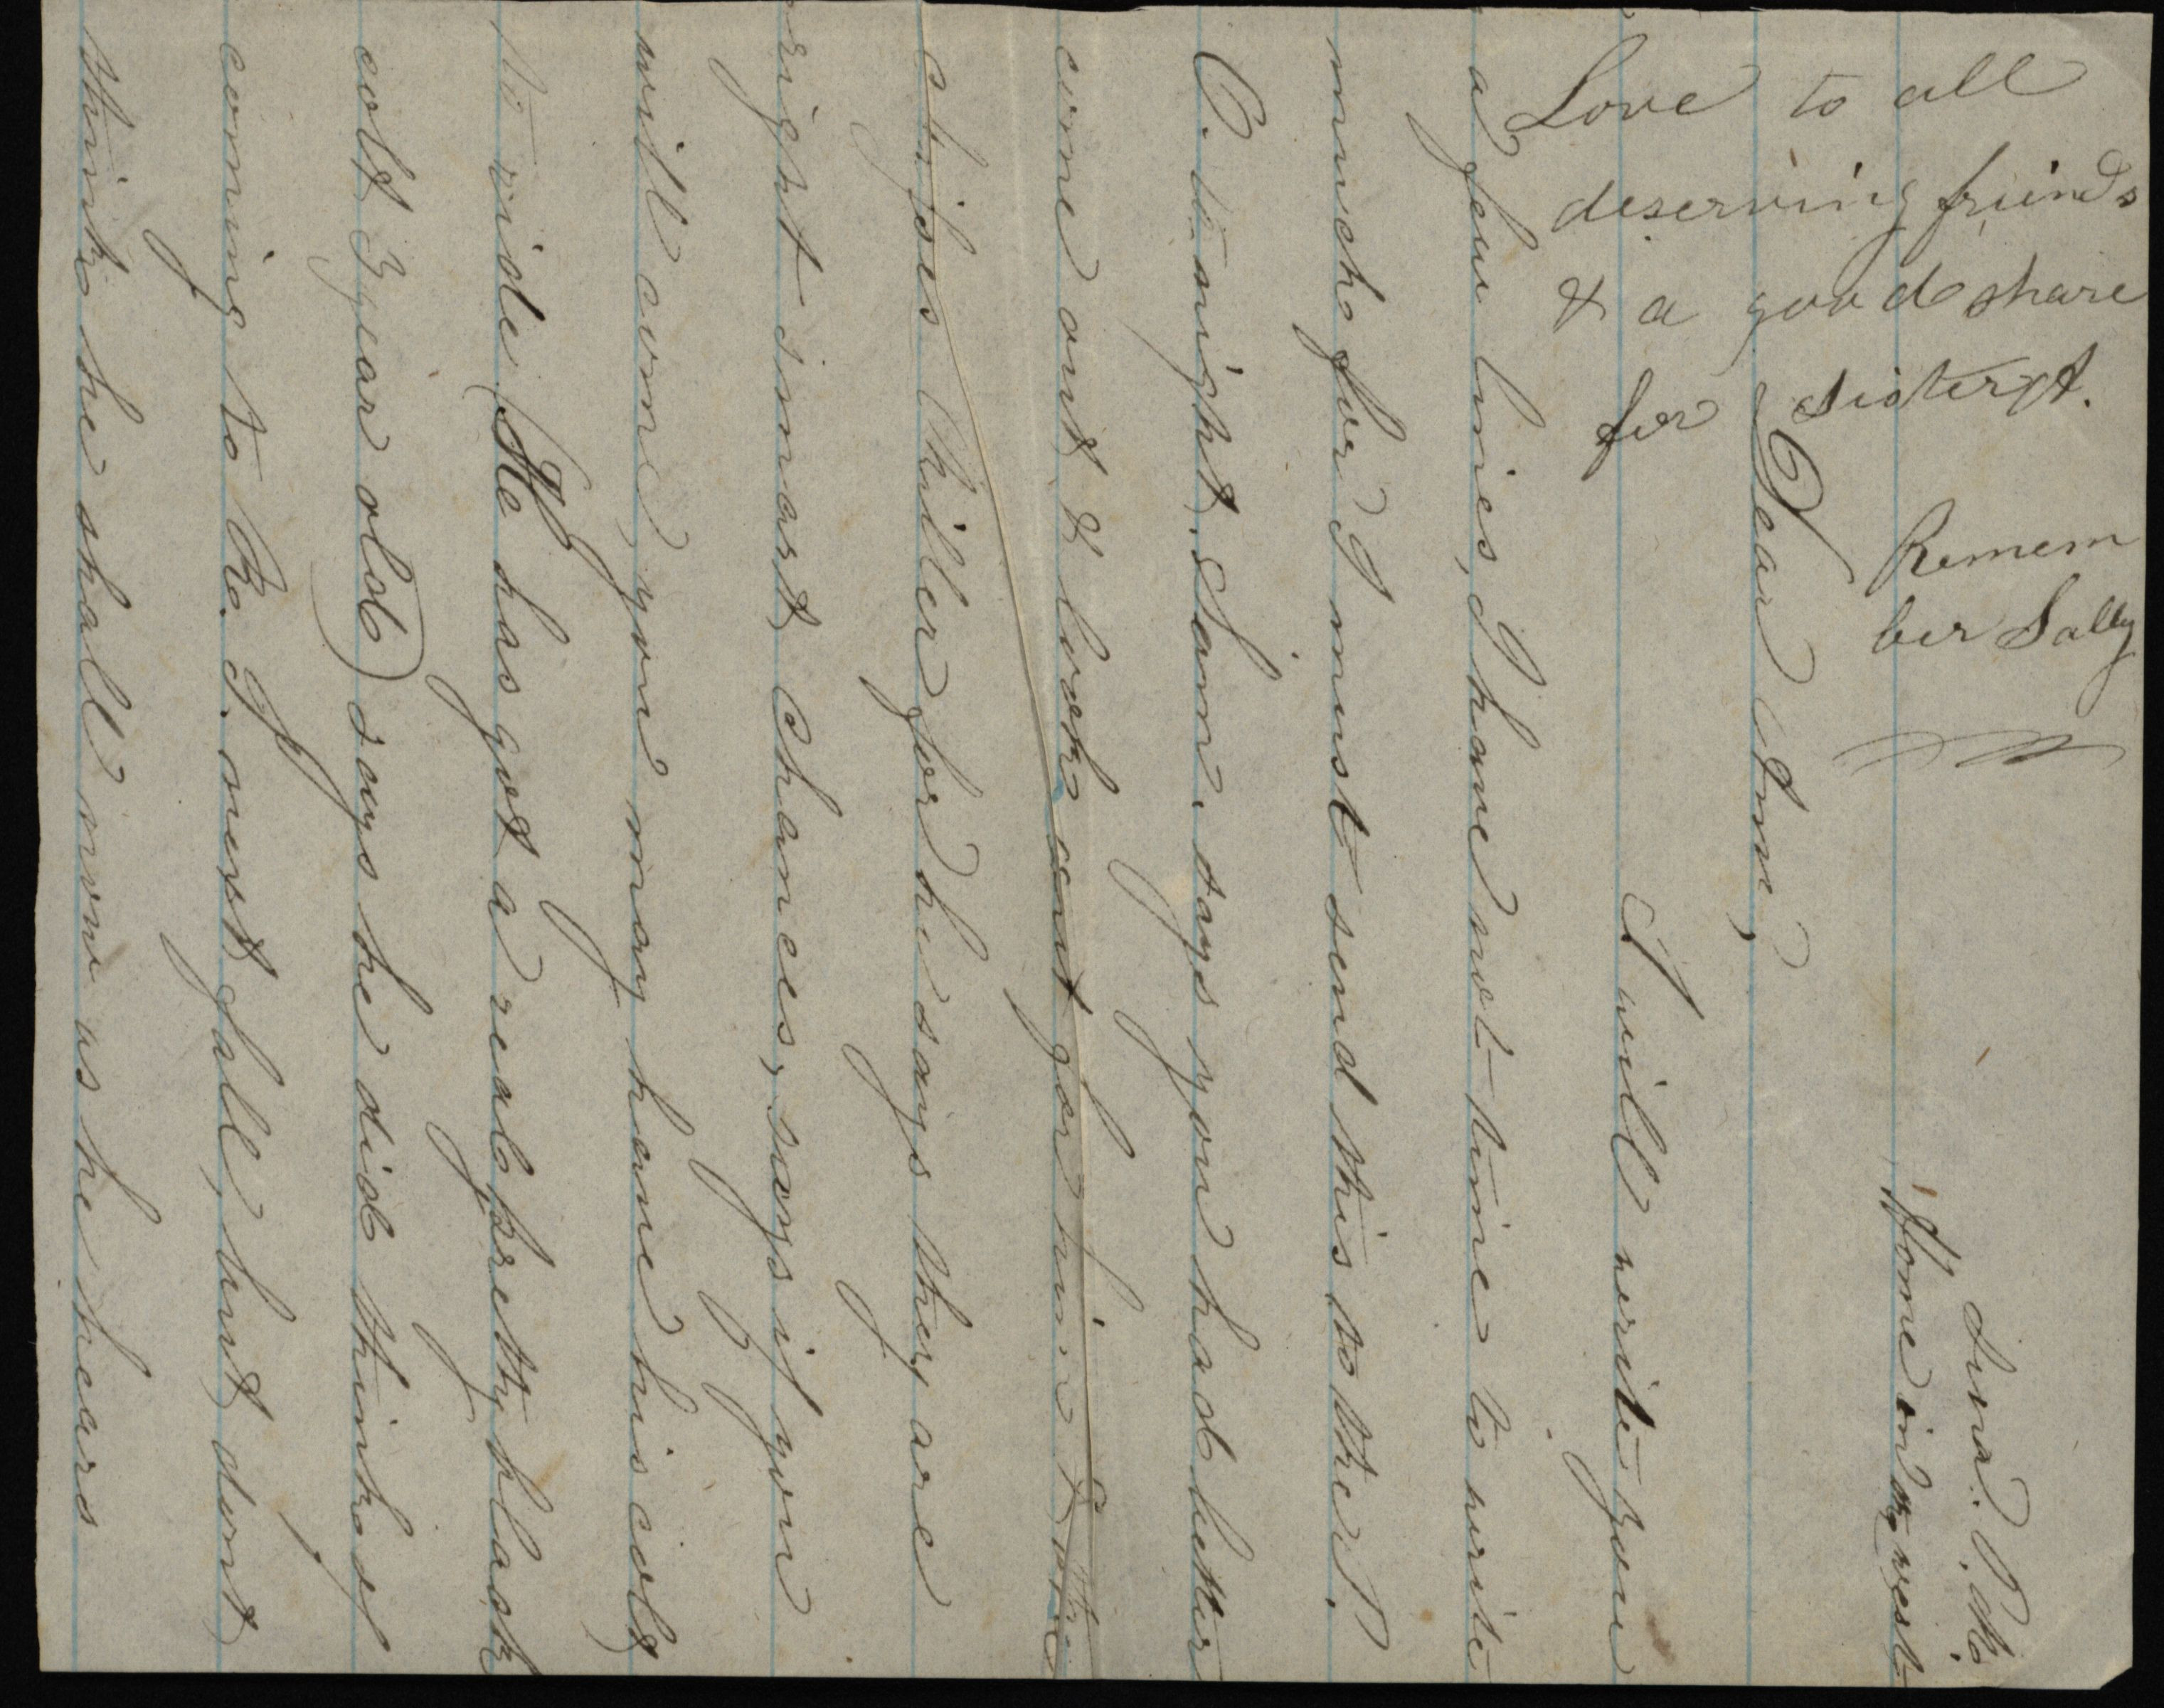 Love to all
deserving friends
& a good share
for sister A.
Remem
ber Sally
Home in the west
Dear Am,
I will write you
a few lines, I have not time to write
much for I must send this to ther.
O. to night. Sam. says you had better
come out & look out for him &
chises killer for he says they are
right smart chances, says if you
will come, you may have his colt
to ride (He has got a real pretty black
colt 3 year old) says he did think of
coming to R. I. next fall, but dont
think he shall now as he hears